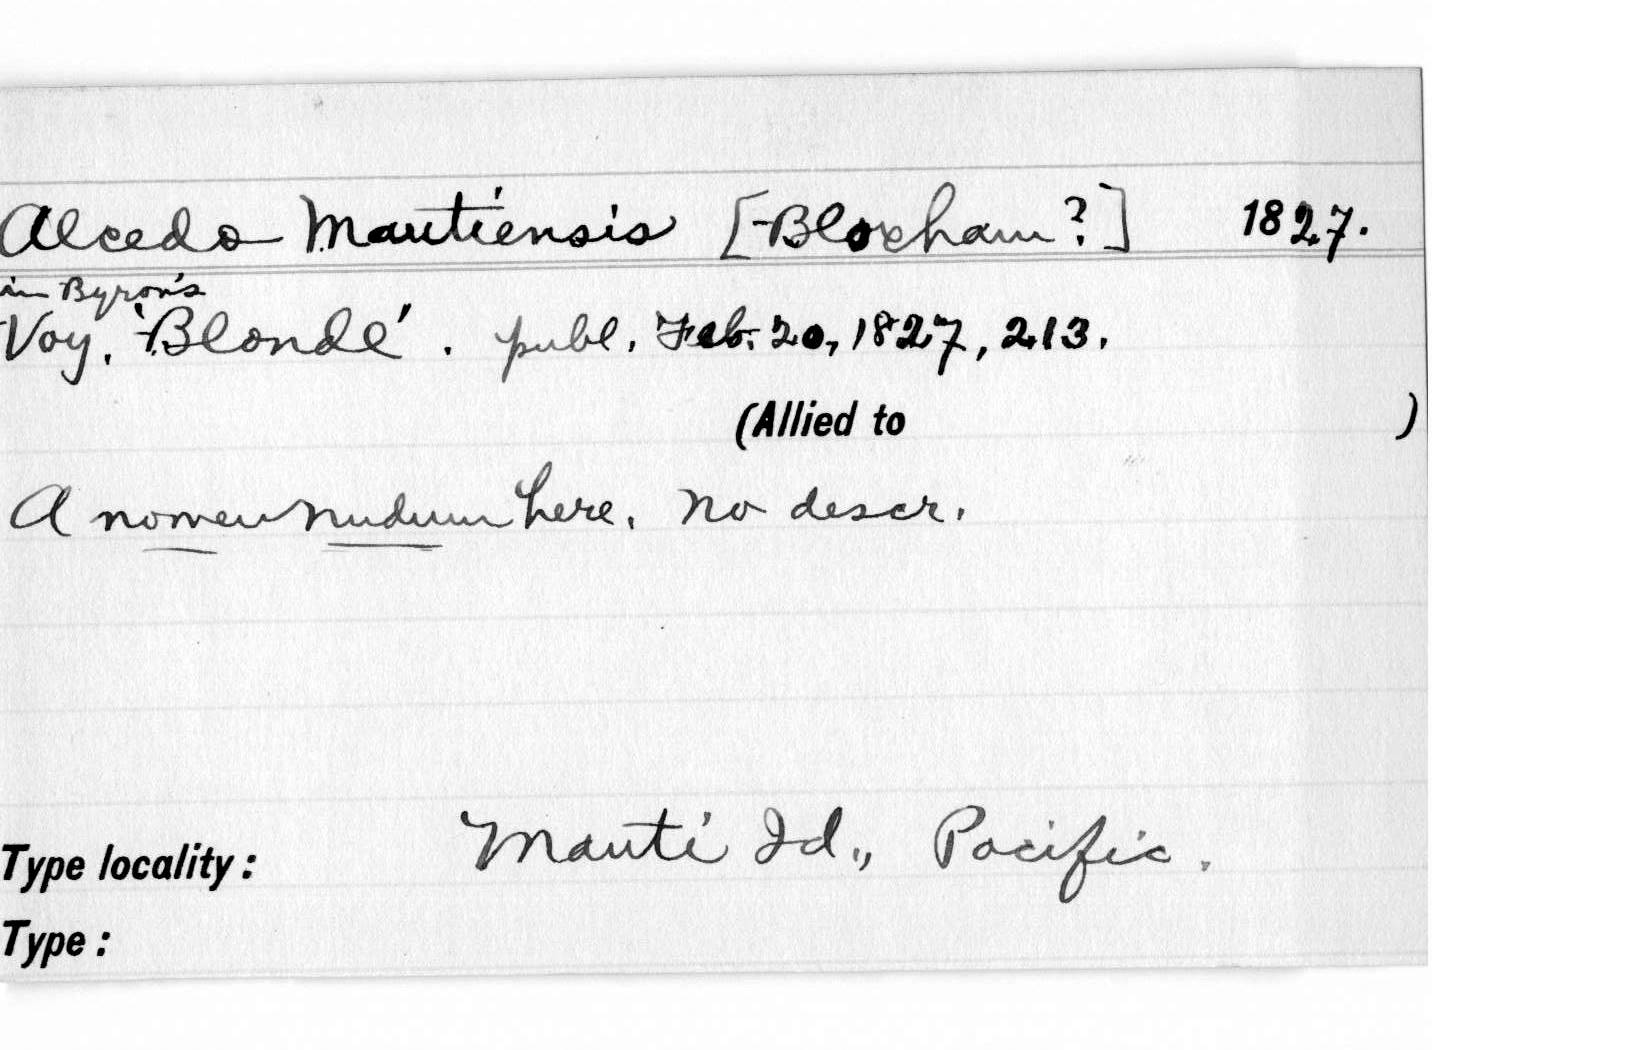 Alcedo Mautiensis [Bloxham?] 1827.
in Byron's
Voy. 'Blonde'. publ. Feb. 20, 1827, 213.
(Allied to )
A nomen nudum here. No descr.
Type locality: Mauti Id., Pacific.
Type: